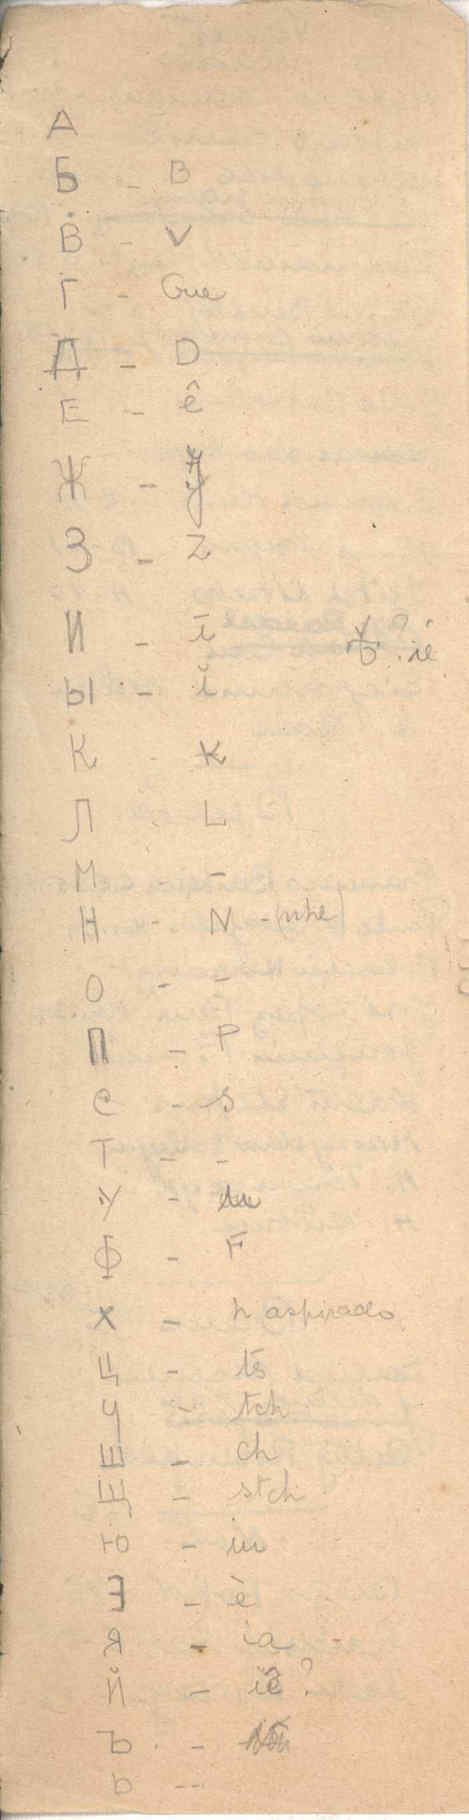 А
Б - B
В - V
Г - Gue
Д - D
Е - ê
Ж - j
З - z
И - ī
Ѣ? iê
Ы - ĭ
К - K
Л - L
М -
Н - N - (nhe)
О - -
П - P
С - s
Т - -
У -
Ф - F
Х - h aspirado
Ц - ts
Ч - tch
Ш - ch
Щ - stch
Ю - iu
Э - è
Я - ia -
Й - iê?
Ъ -
Ь --